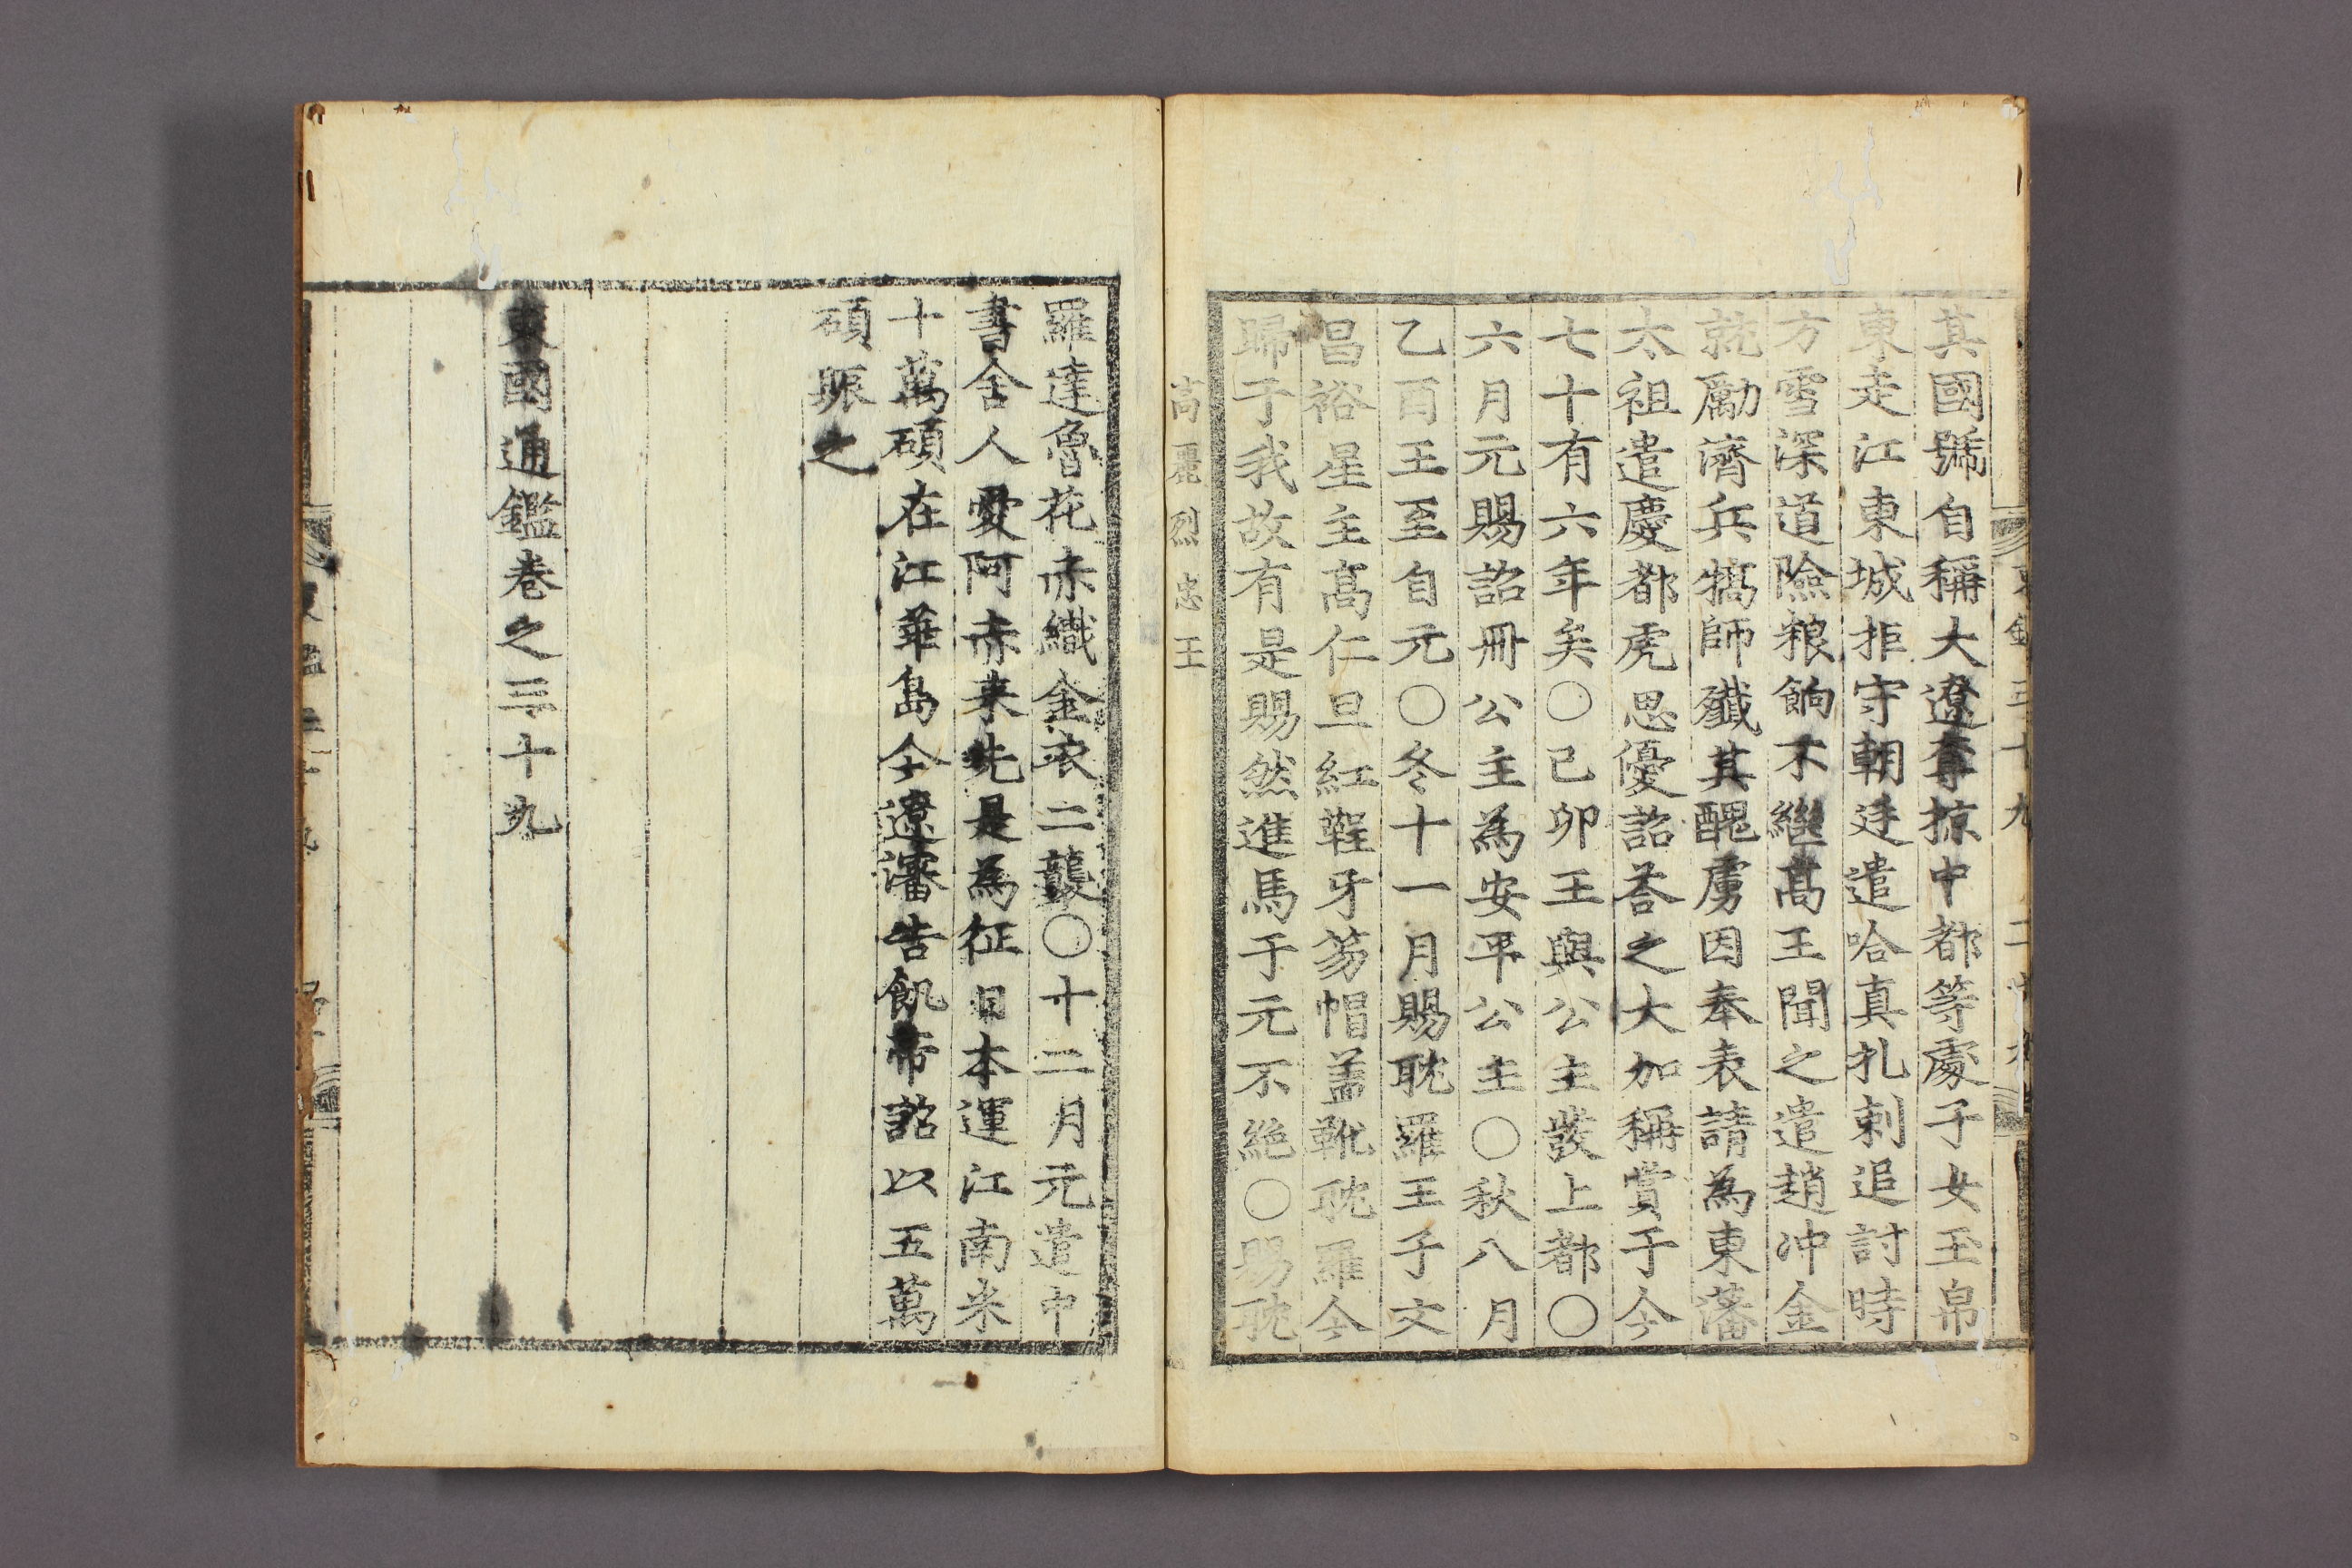 其國號自稱大遼奪掠中都等處子女玉帛
東走江東城拒守朝廷遣哈真扎剌追討時
方雪深道險粮餉不繼髙王聞之遣趙冲金
就勵濟兵犒師殲其醜虜因奉表請為東藩
太祖遣慶都虎思優詔荅之大加稱賞于今
七十有六年矣〇己卯王與公主發上都〇
六月元賜詔冊公主為安平公主〇秋八月
乙酉王至自元〇冬十一月賜耽羅王子文
昌裕星主髙仁旦紅鞓牙笏帽盖靴耽羅今
歸于我故有是賜然進馬于元不絶〇賜耽
高麗烈忠王
羅達魯花赤織金衣二襲〇十二月元遣中
書舍人愛阿赤来先是為征日本運江南米
十萬碩在江華島今遼瀋告飢帝詔以五萬
碩賑之
東國通鑑巻之三十九